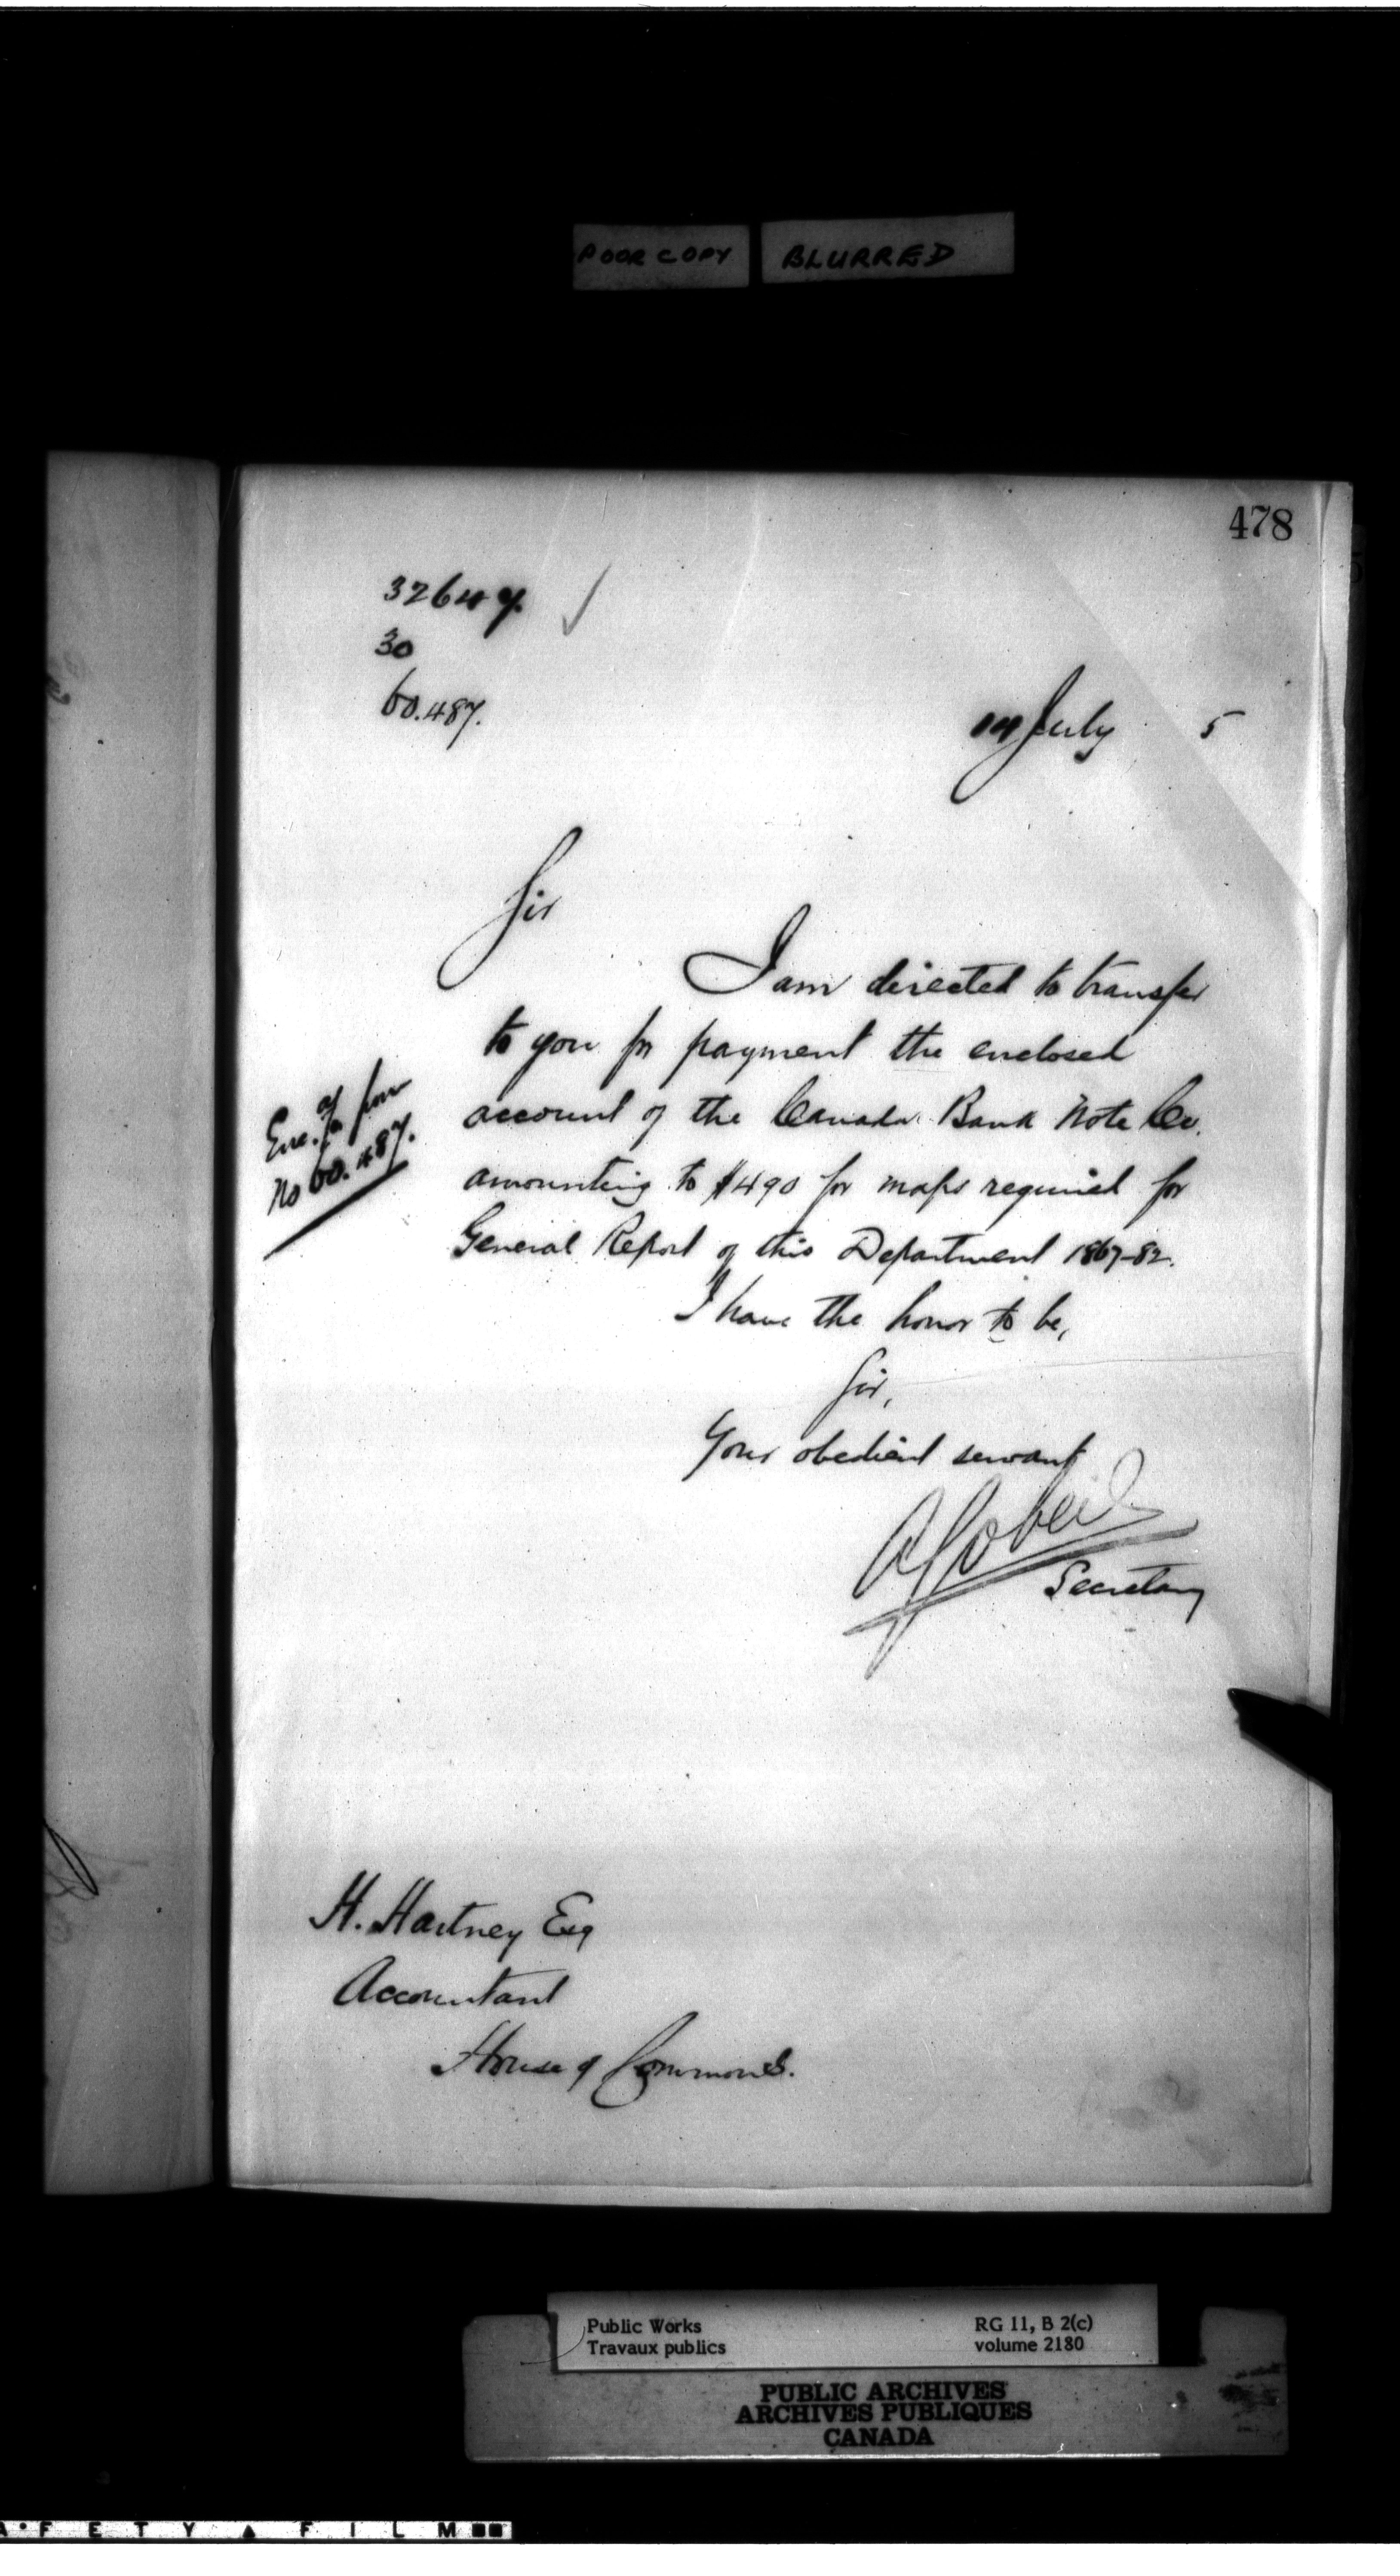 POOR COPY BLURRED
478
32647.
30
60.487.
14 July 5
Sir
I am directed to transfer
to you for payment the enclosed
account of the Canada Bank Note Co.
amounting to $490 for maps required for
General Report of this Department 1867-82.
I have the honor to be,
Sir,
Your obedient servant
Secretary
Enc. of
from
No 60.487.
H. Hartney Esq
Accountant
House of Commons.
Public Works RG 11, B 2(c)
Travaux publics volume 2180
PUBLIC ARCHIVES
ARCHIVES PUBLIQUES
CANADA
FETY ▲ FILM